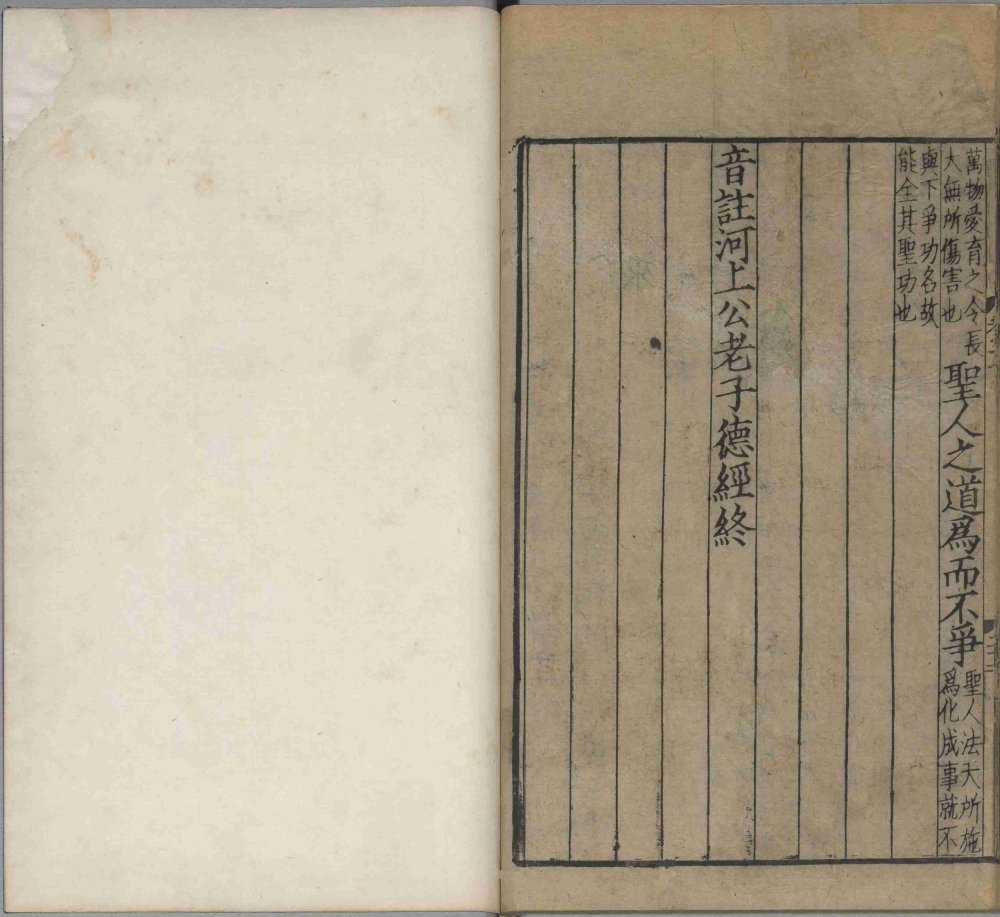 萬物愛育之令長
大無所傷害也
聖人之道爲而不爭
聖人法天所施
爲化成事就不
與下爭功名故
能全其聖功也
音註河上公老子德經終